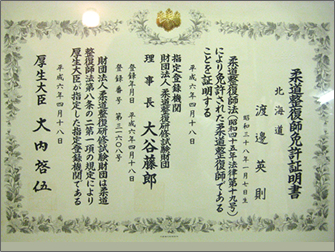 柔道整復師免許証明書
北海道
渡邉英則
昭和三十八年一月七日生
柔道整復師法（昭和四十五年法律第十九号）
により免許された柔道整復師である
ことを証明する
平成六年四月十八日
指定登録機関
財団法人柔道整復研修試験財団
理事長 大谷藤郎
登録年月日 平成六年四月十八日
登録番号 第三一六〇八号
財団法人柔道整復研修試験財団は柔道
整復師法第八条の二第一項の規定により
厚生大臣が指定した指定登録機関である
平成六年四月十八日
厚生大臣 大内啓伍